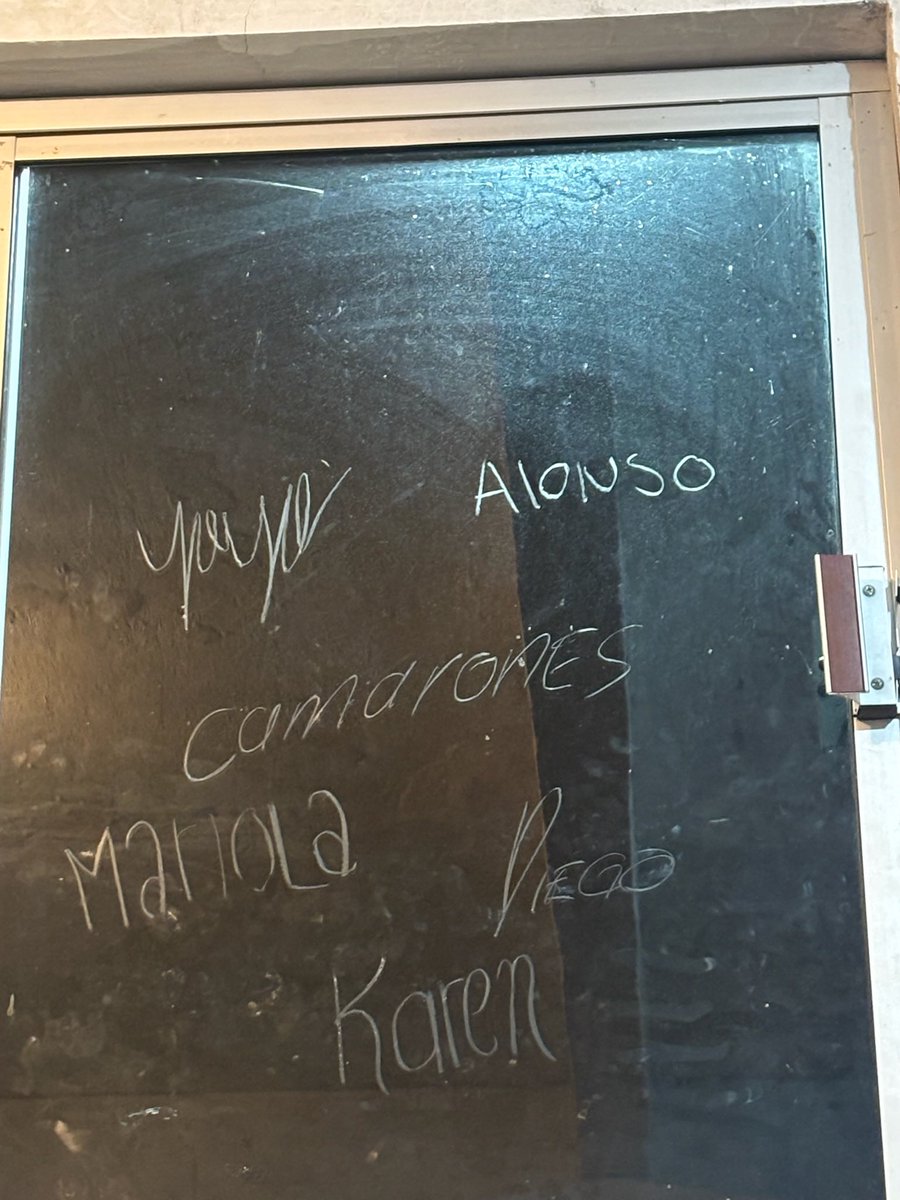 yayo Alonso
camaronES
MarioLa DIEGO
Karen